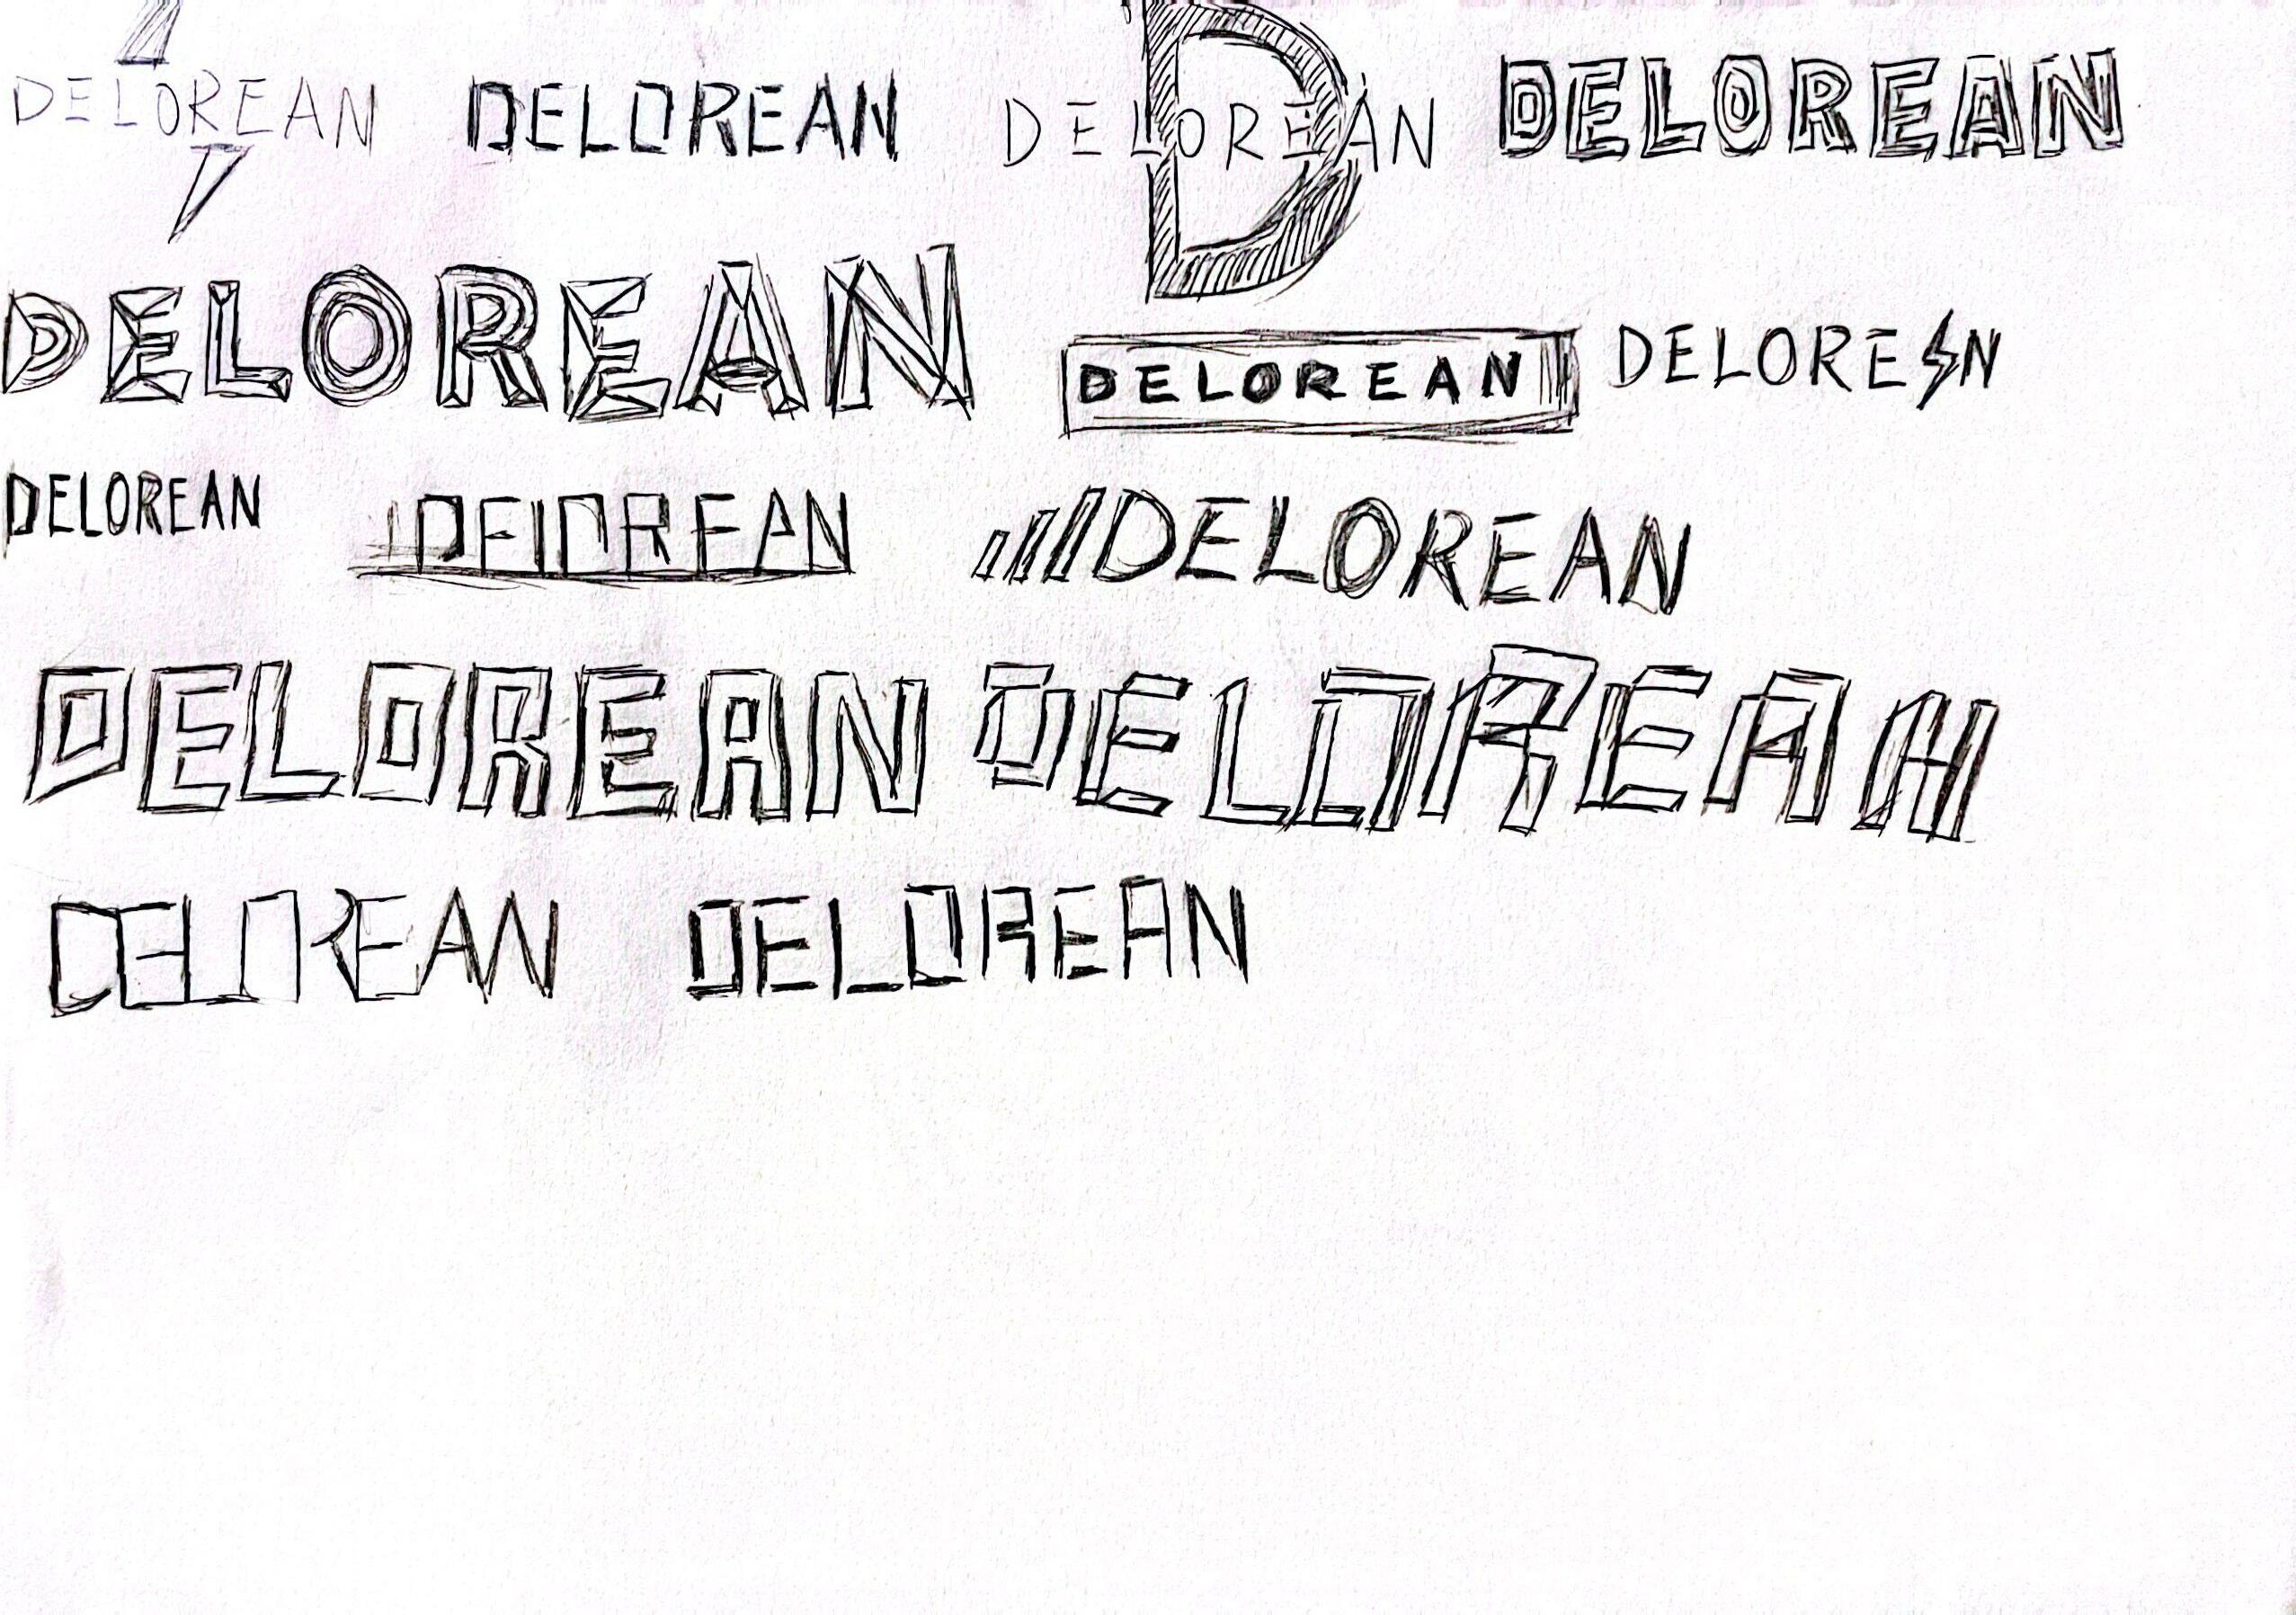 DELOREAN DELOREAN DELOREAN DELOREAN
D
DELOREAN DELOREAN DELOREN
DELOREAN DELOREAN DELOREAN
DELOREAN DELOREAN
DELOREAN DELOREAN